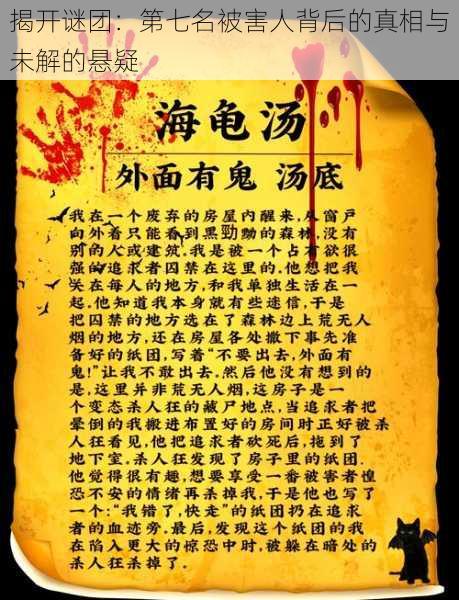 揭开谜团：第七名被害人背后的真相与
未解的悬疑
海龟汤
外面有鬼 汤底
我在一个废弃的房屋内醒来,从窗户
向外看只能看到黑勁黝的森林,没有
别的人或建筑.我是被一个占有欲很
强的追求者囚禁在这里的.他想把我
关在每人的地方,和我单独生活在一
起.他知道我本身就有些迷信,于是
把囚禁的地方选在了森林边上荒无人
烟的地方,还在房屋各处撒下事先准
备好的纸团,写着“不要出去,外面有
鬼!”让我不敢出去.然后他没有想到的
是,这里并非荒无人烟,这房子是一
个变态杀人狂的藏尸地点,当追求者把
晕倒的我搬进布置好的房间时正好被杀
人狂看见,他把追求者砍死后,拖到了
地下室.杀人狂发现了房子里的纸团.
他觉得很有趣,想要享受一番被害者惶
恐不安的情绪再杀掉我,于是他也写了
一个:“我错了,快走”的纸团扔在追求
者的血迹旁.最后,发现这个纸团的我
在陷入更大的惊恐中时,被躲在暗处的
杀人狂杀掉了.